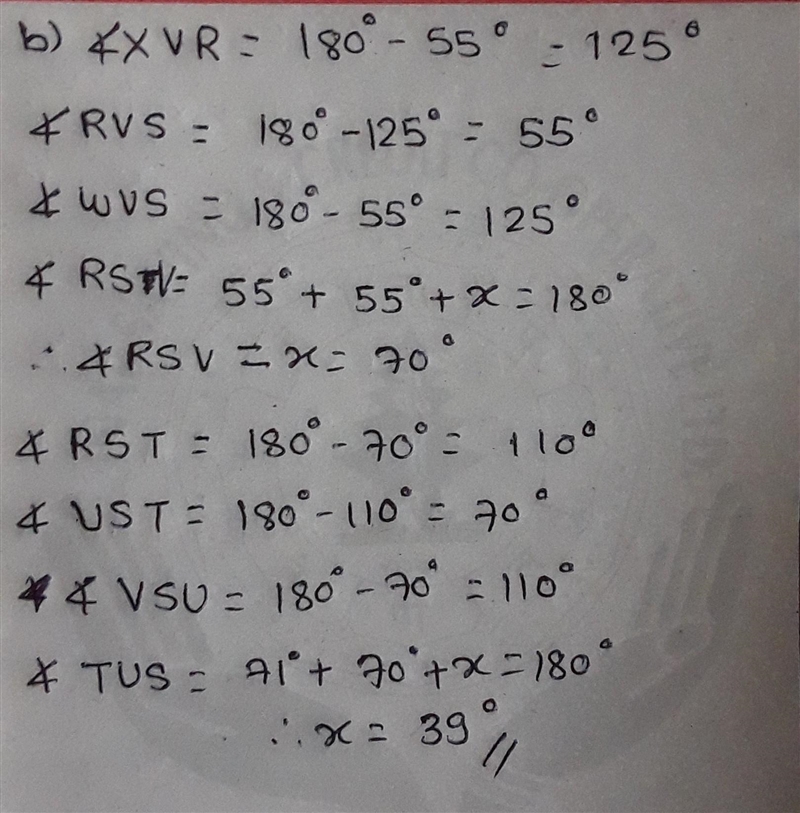 b) ∡XVR = 180° - 55° = 125°
∡RVS = 180° - 125° = 55°
∡WVS = 180° - 55° = 125°
∡RS = 55° + 55° + x = 180°
∴ ∡RSV = x = 70°
∡RST = 180° - 70° = 110°
∡UST = 180° - 110° = 70°
∡VSU = 180° - 70° = 110°
∡TUS = 71° + 70° + x = 180°
∴ x = 39°//